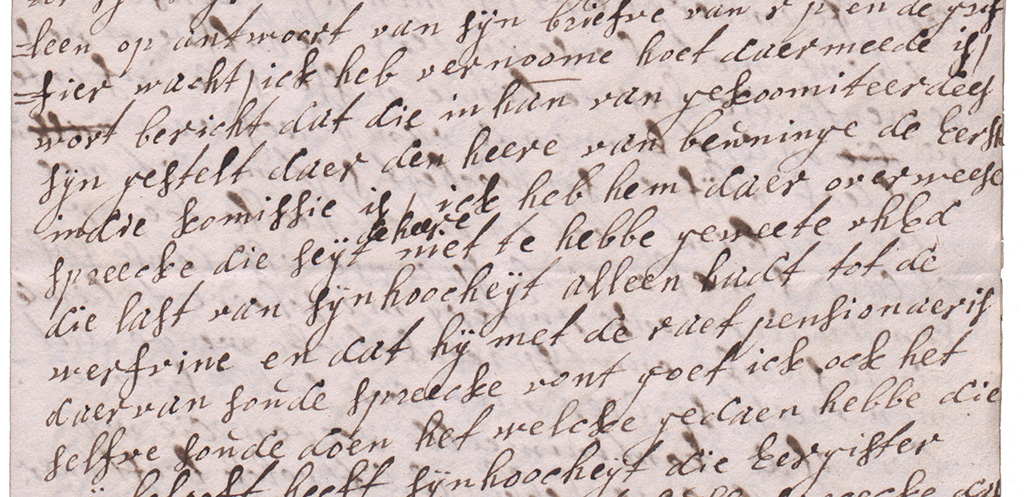 teen op antwoort van sijn briefve van
hier wacht / ick heb vernoome hoet daermeede is /
wort bericht dat die in han van gekoomiteerdees
sijn gestelt daer den heere van beuninge de Eerste
in die komissie is / ick heb hem daer over weese
de heere
spreecke die seijt niet te hebbe geweete
die last van sijn hoocheijt alleen hadt tot de
en dat hij met de raet pensionaeris
daer van soude spreecke vont goet ick ock het
selfve soude doen het welcke gedaen hebbe die
heeft sijn hoocheijt die Eergister